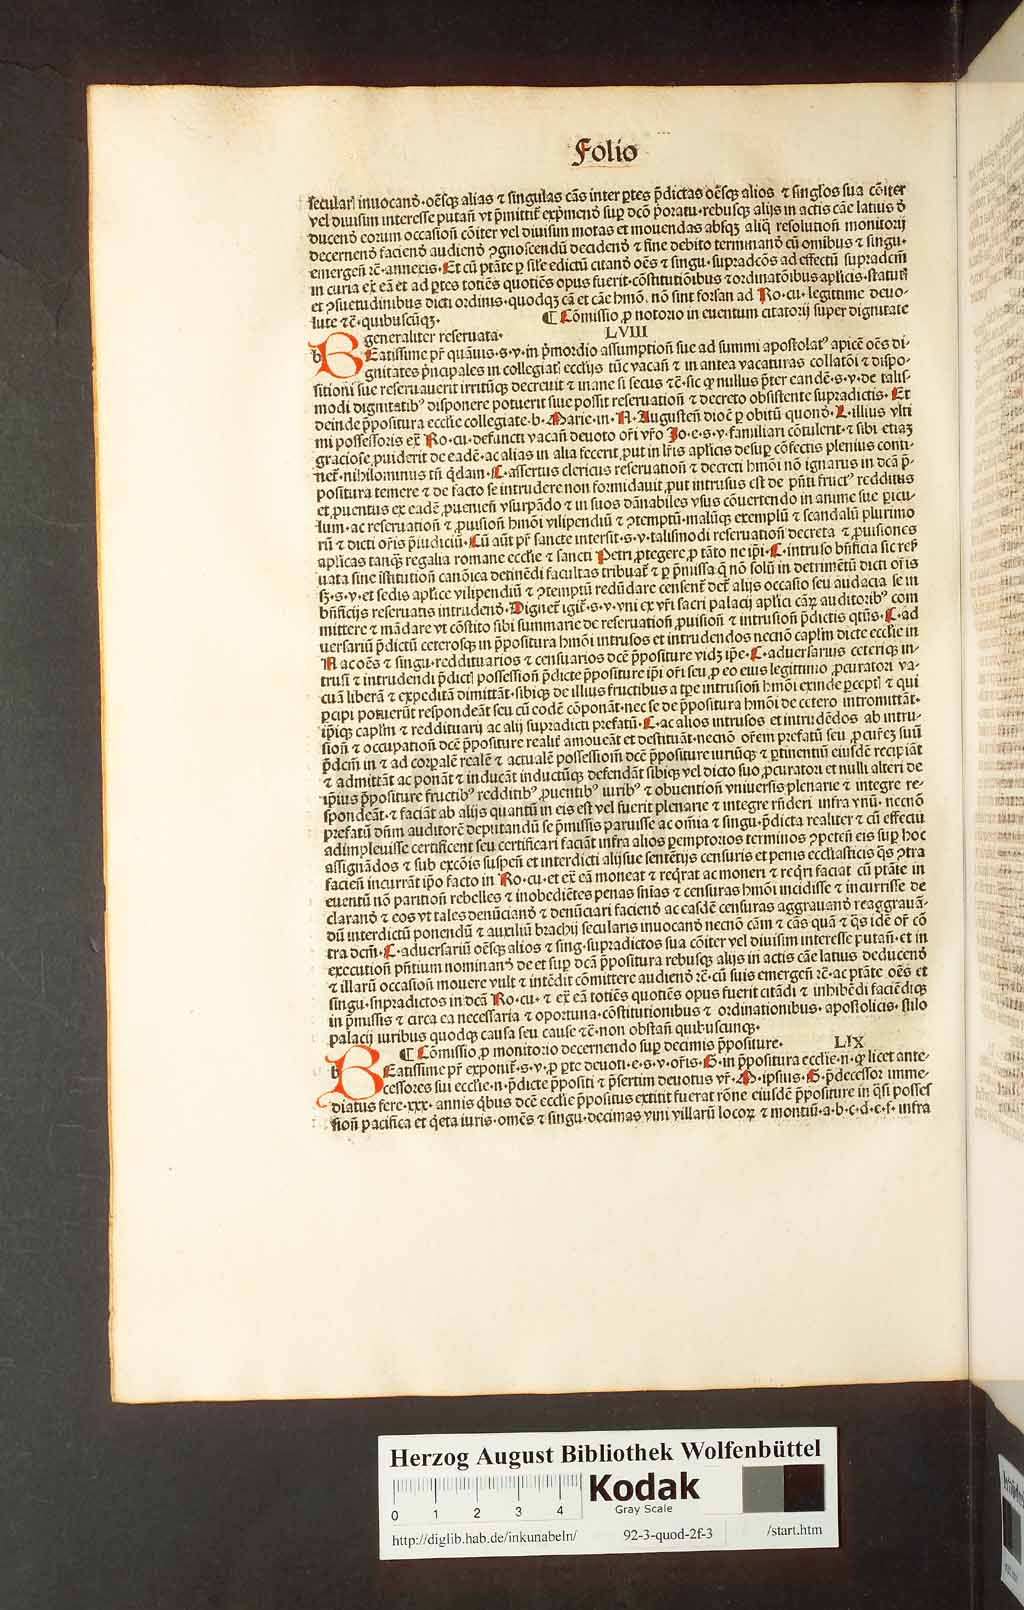 Folio
secular᷒ inuocanđ·oēsq̄ꝫ alias ⁊ singulas cās inter ꝑtes p̄dictas oēsq̄ꝫ alios ⁊ singl̄os sua cōiter
vel diuisim interesse putan̄ vt p̄mittit᷑ exp̄menđ suꝑ dcō p̄oratu·rebusqꝫ alijs in actis cāe latius đ
ducenđ eorum occasion̄ cōiter vel diuisim motas et mouendas absqꝫ aliq̄ resolution̄ monitorij
decernenđ facienđ audienđ ꝯgnoscendū decidenđ ⁊ fine debito terminanđ cū omibus ⁊ singu·
emergen̄ rē·annexis·Et cū ptāte ꝑ sile edictū citanđ oēs ⁊ singu·supradcōs ad effectū supradcm̄
in curia ex̄ eā et ad ꝑtes totiēs quotiēs opus fuerit·cōstitutiōibus ⁊ ordinatōibus aplicis·statut᷒
et ꝯsuetudinibus dicti ordinis·quodqꝫ cā et cāe hmōi· nō sint forsan ad Ro·cu·legittime deuo-
lute ⁊ē·quibuscūqꝫ·
¶ Cōmissio ꝓ notorio in euentum citatorij super dignitate
generaliter reseruata·
LVIII
b BEatissime pr̄ quāuis·s·v·in p̄mordio assumption̄ sue ad summi apostolatꝰ apicē oēs di-
gnitates p̄ncipales in collegiat᷒ ecclijs tūc vacan̄ ⁊ in antea vacaturas collatōi ⁊ dispo-
sitioni sue reseruauerit irritūqꝫ decreuit ⁊ inane si secus ⁊ē·sic ꝙ nullus p̄ter eandē·s·v·de talis-
modi dignitatibꝰ disponere potuerit siue possit reseruation̄ ⁊ decreto obsistente supradictis·Et
deinde p̄positura ecclie collegiate·b·Marie·in·A·Augusten̄ dioē ꝑ obitū quonđ·L·illius vlti
mi possessoris ex̄ Ro·cu·defuncti vacan̄ deuoto or̄i vr̄o Jo·e·s·v·familiari cōtulerit·⁊ sibi etiaꝫ
graciose ꝓuiderit de eadē·ac alias in alia fecerit ꝓut in lr̄is aplicis desuꝑ cōfectis plenius conti-
net᷑·nihilominus tn̄ q̄dam·C·assertus clericus reseruation̄ ⁊ decreti hmōi nō ignarus in dcā p̄-
positura temere ⁊ de facto se intrudere non formidauit ꝓut intrusus est de p̄nti fructꝰ redditus
et ꝓuentus ex eadē ꝓuenien̄ vsurpādo ⁊ in suos dānabiles vsus cōuertendo in anime sue ꝑicu-
lum·ac reseruation̄ ⁊ ꝓuision̄ hmōi vilipendiū ⁊ ꝯtemptū·malūqꝫ exemplū ⁊ scandalū plurimo
rū ⁊ dicti or̄is p̄iudiciū·Cū aūt pr̄ sancte intersit·s·v·talismodi reseruation̄ decreta ⁊ ꝓuisiones
aplicas tanqꝫ regalia romane ecclie ⁊ sancti Petri ꝓtegere ꝓ tāto ne ip̄i·C·intruso bn̄ficia sic res̄
uata sine īstitution̄ canōica detinēdi facultas tribuat᷑ ⁊ ꝑ p̄missa q̄ nō solū in detrimētū dicti or̄is
sꝫ·s·v·et sedis aplice vilipendiū ⁊ ꝯtemptū redūdare censent᷑ det᷑ alijs occasio seu audacia se in
bn̄ficijs reseruatis intrudenđ·Dignet᷑ igit᷑·s·v·vni ex vr̄i sacri palacij aplici cāꝝ auditoribꝰ com
mittere ⁊ mādare vt cōstito sibi summarie de reseruation̄ ꝓuision̄ ⁊ intrusion̄ p̄dictis qtūs·C·ad
uersariū p̄dictū ceterosqꝫ in p̄positura hmōi intrusos et intrudendos necnō caplm̄ dicte ecclie in
A ac oēs ⁊ singu·reddituarios ⁊ censuarios dcē p̄positure vidꝫ ip̄e·C·aduersarius ceteriqꝫ in-
trusi ⁊ intrudendi p̄dict᷒ possession̄ p̄dicte p̄positure ip̄i or̄i seu ꝓ eo eius legittimo ꝓcuratori va-
cuā liberā ⁊ expeditā dimittāt·sibiqꝫ de illius fructibus a tꝑe intrusion̄ hmōi exinde ꝑcept᷒ ⁊ qui
ꝑcipi potuerūt respondeāt seu cū eodē cōponāt·nec se de p̄positura hmōi de cetero intromittāt·
ip̄iqꝫ caplm̄ ⁊ reddituarij ac alij supradicti prefatū·C·ac alios intrusos et intrudēdos ab intru-
sion̄ ⁊ occupation̄ dcē p̄positure realit᷑ amoueāt et destituāt·necnō or̄em prefatū seu ꝓcur̄eꝫ suū
p̄dcm̄ in ⁊ ad corꝑalē realē ⁊ actualē possessiom̄ dcē p̄positure iuriūqꝫ ⁊ ꝑtinentiū eiusdē recipiāt
⁊ admittāt ac ponāt ⁊ inducāt inductūqꝫ defendāt sibiqꝫ vel dicto suo ꝓcuratori et nulli alteri de
ip̄ius p̄positure fructibꝰ redditibꝰ ꝓuentibꝰ iuribꝰ ⁊ obuention̄ vniuersis plenarie ⁊ integre re-
spondeāt·⁊ faciāt ab alijs quantū in eis est vel fuerit plenarie ⁊ integre rn̄deri infra vnū· necnō
prefatū dn̄m auditorē deputandū se p̄missis paruisse ac om̄ia ⁊ singu·p̄dicta realiter ⁊ cū effectu
adimpleuisse certificent seu certificari faciāt infra alios ꝑemptorios terminos ꝯpeten̄ eis suꝑ hoc
assignādos ⁊ sub excōis suspen̄ et interdicti alijsue sentētijs censuris et penis ecclīasticis q̄s ꝯtra
facien̄ incurrāt ip̄o facto in Ro·cu·et ex̄ eā moneat ⁊ req̄rat ac moneri ⁊ req̄ri faciat cū ptāte in
euentū nō parition̄ rebelles ⁊ inobediētes penas sn̄ias ⁊ censuras hmōi incidisse ⁊ incurrisse de
claranđ ⁊ eos vt tales denūcianđ ⁊ denūciari facienđ ac easdē censuras aggrauanđ reaggrauā-
dū interdictū ponendū ⁊ auxiliū brachij secularis inuocanđ necnō cām ⁊ cās quā ⁊ q̄s idē or̄ cō
tra dcm̄·C·aduersariū oēsqꝫ alios ⁊ sing·supradictos sua cōiter vel diuisim interesse putan̄·et in
execution̄ pn̄tium nominanđ de et suꝑ dcā p̄positura rebusqꝫ alijs in actis cāe latius deducenđ
⁊ illarū occasion̄ mouere vult ⁊ intēdit cōmittere audienđ rē·cū suis emergen̄ rē·ac ptāte oēs et
singu·supradictos in dcā Ro·cu·⁊ ex̄ eā totiēs quotiēs opus fuerit citādi ⁊ inhibēdi faciēdiqꝫ
in p̄missis ⁊ circa ea necessaria ⁊ oportuna·cōstitutionibus ⁊ ordinationibus·apostolicis·stilo
palacij iuribus quodqꝫ causa seu cause ⁊ē·non obstan̄ quibuscunqꝫ·
¶ Cōmissio ꝓ monitorio decernendo suꝑ decimis p̄positure·
LIX
b BEatissime pr̄ exponit᷑·s·v·ꝓ pte deuoti·e·s·v·or̄is·G·in p̄positura ecclie·n·ꝙ licet ante-
cessores sui ecclie·n·p̄dicte p̄positi ⁊ p̄sertim deuotus vr̄·M·ipsius·G·p̄decessor imme-
diatus fere·xxx·annis q̄bus dcē ecclie p̄positus extitit fuerat rōne eiusdē p̄positure in q̄si posses
sion̄ pacifica et q̄eta iuris·omēs ⁊ singu·decimas vini villarū locoꝝ ⁊ montiū·a·b·c·d·e·f·infra
Herzog August Bibliothek Wolfenbüttel
0 1 2 3 4
Kodak
Gray Scale
http://diglib.hab.de/inkunabeln/ 92-3-quod-2f-3 /start.htm